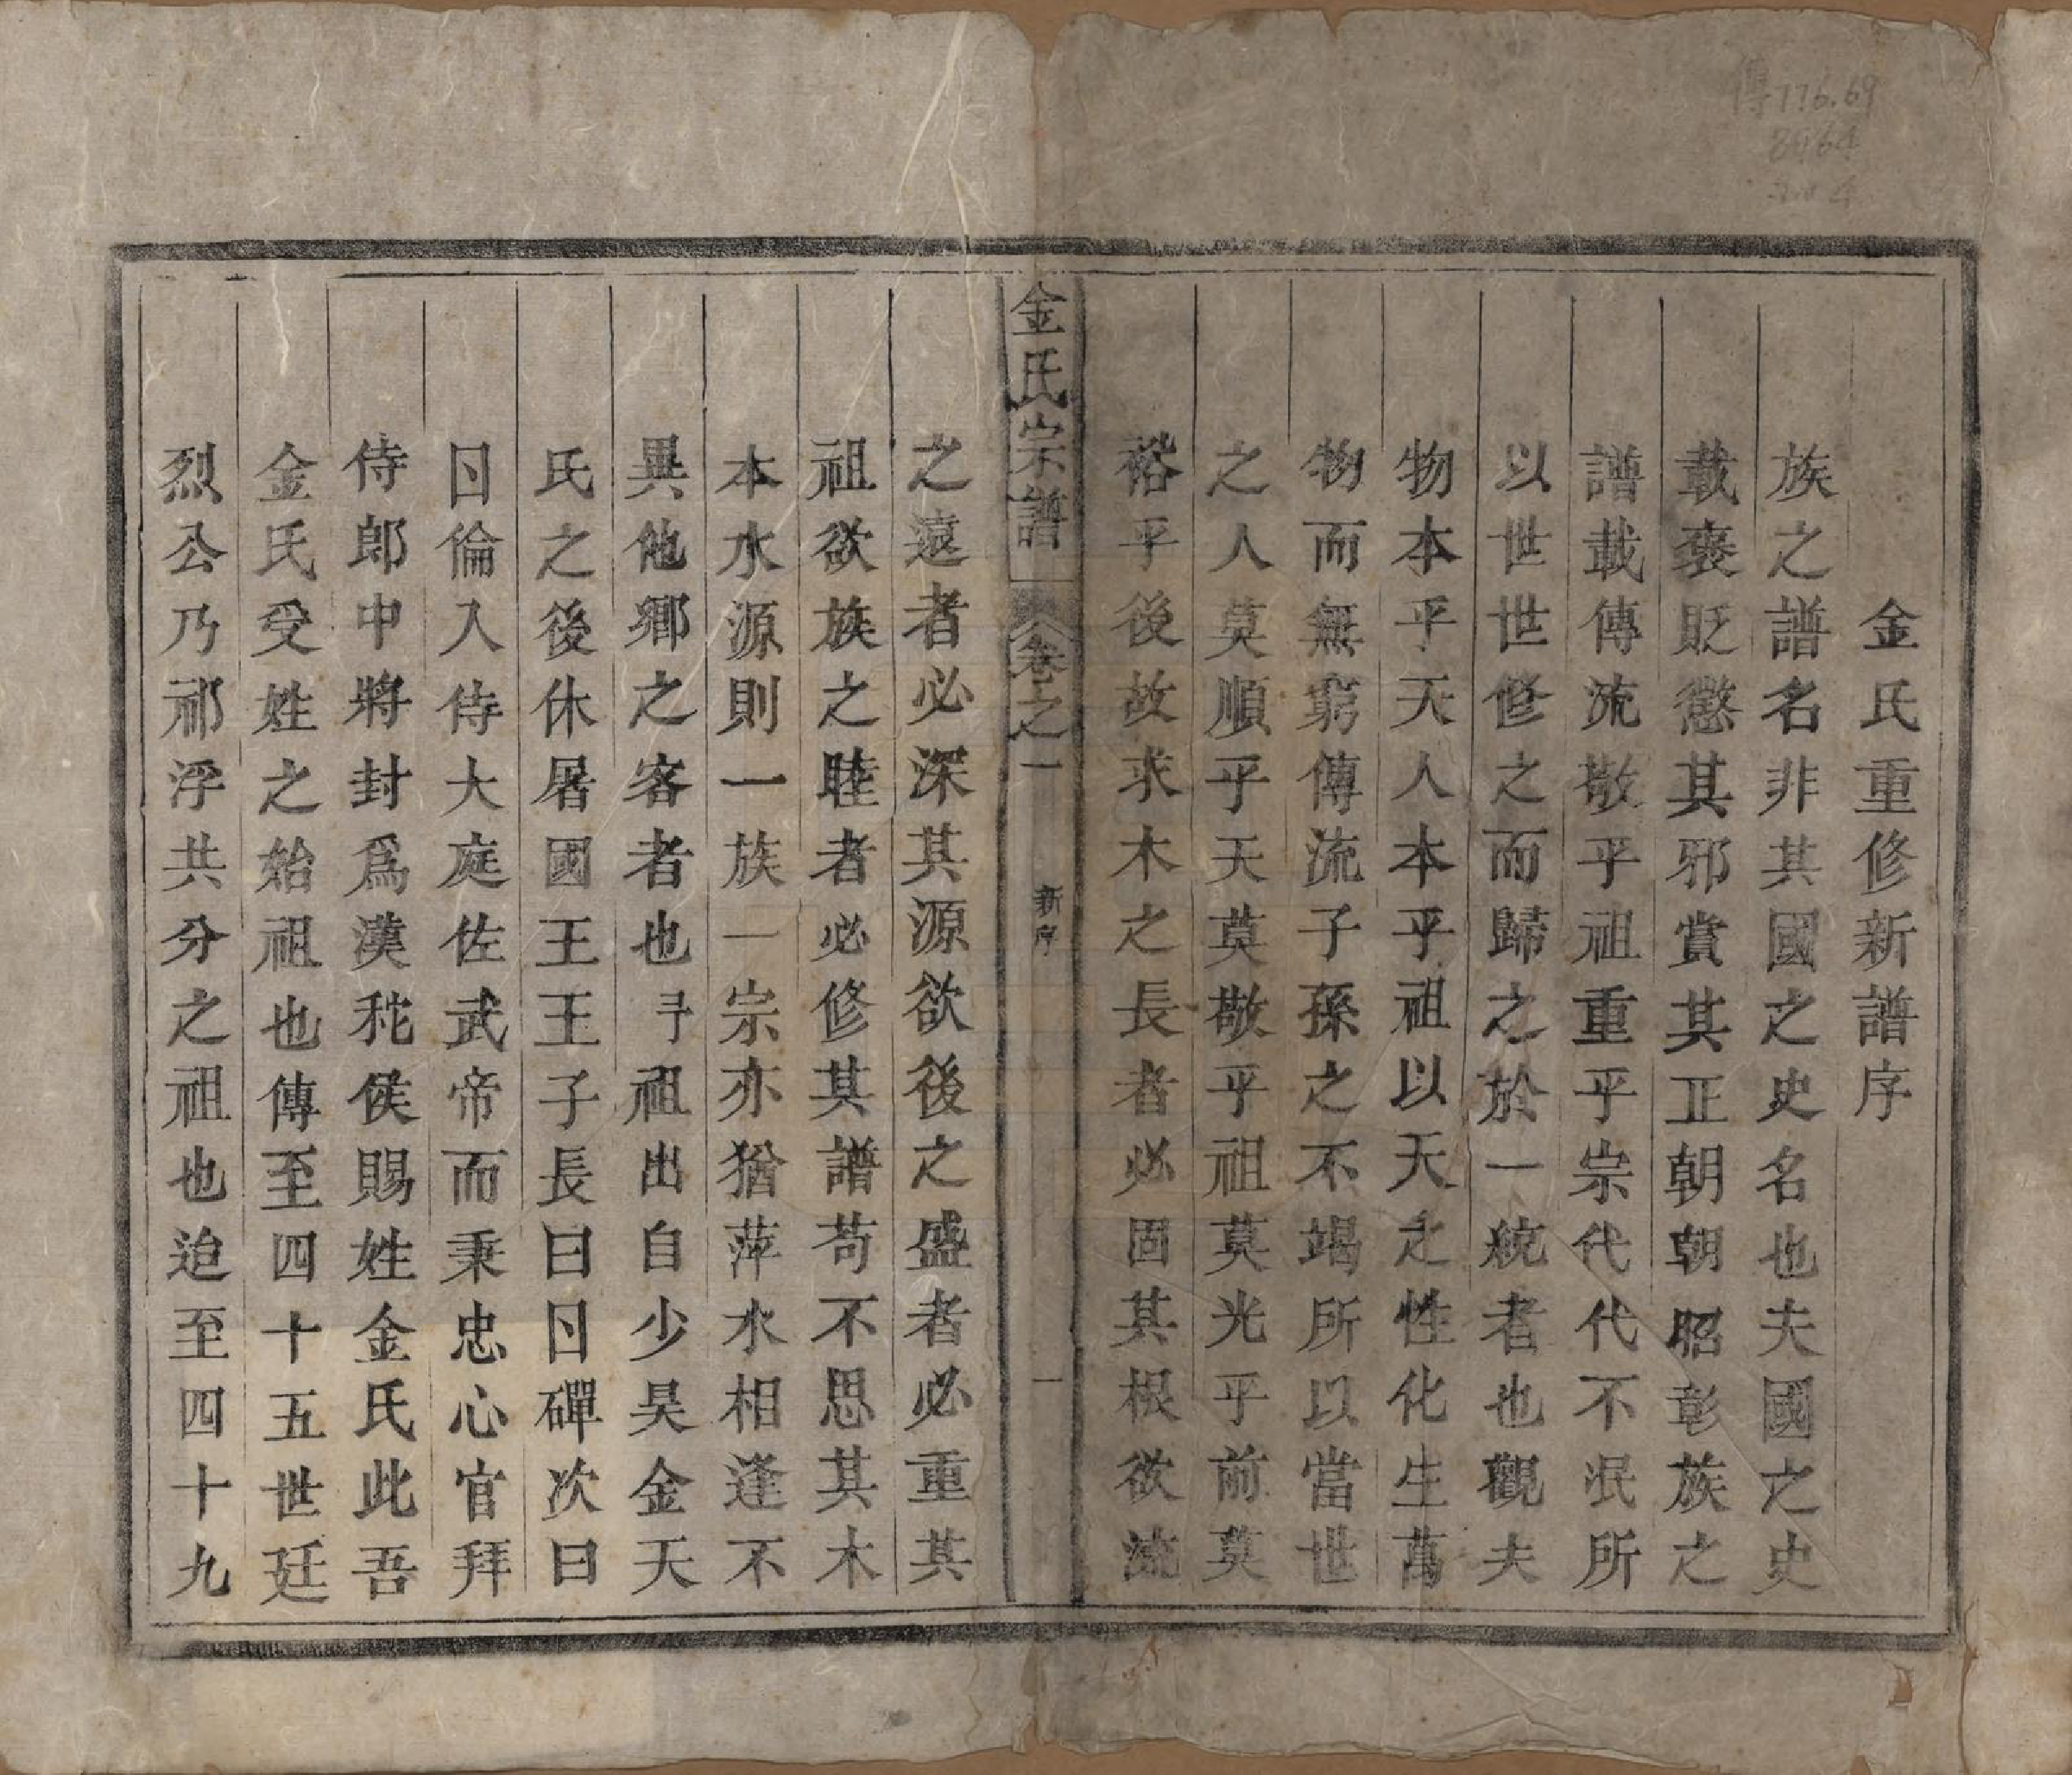 金氏重修新譜序
族之譜名非其國之史名也夫國之史
載褒貶懲其邪賞其正朝朝昭彰族之
譜載傳流敬乎祖重乎宗代代不泯所
以世世修之而歸之於一統者也觀夫
物本乎天人本乎祖以天之性化生萬
物而無窮傳流子孫之不竭所以當世
之人莫順乎天莫敬乎祖莫光乎前莫
裕乎後故求木之長者必固其根欲流
金氏宗譜
卷之一
新序
一
之遠者必深其源欲後之盛者必重其
祖欲族之睦者必修其譜苟不思其木
本水源則一族一宗亦猶萍水相逢不
異他鄉之客者也予祖出自少昊金天
氏之後休屠國王王子長曰日磾次曰
日倫入侍大庭佐武帝而秉忠心官拜
侍郎中將封爲漢秺侯賜姓金氏此吾
金氏受姓之始祖也傳至四十五世廷
烈公乃祁浮共分之祖也迨至四十九
傳776.69